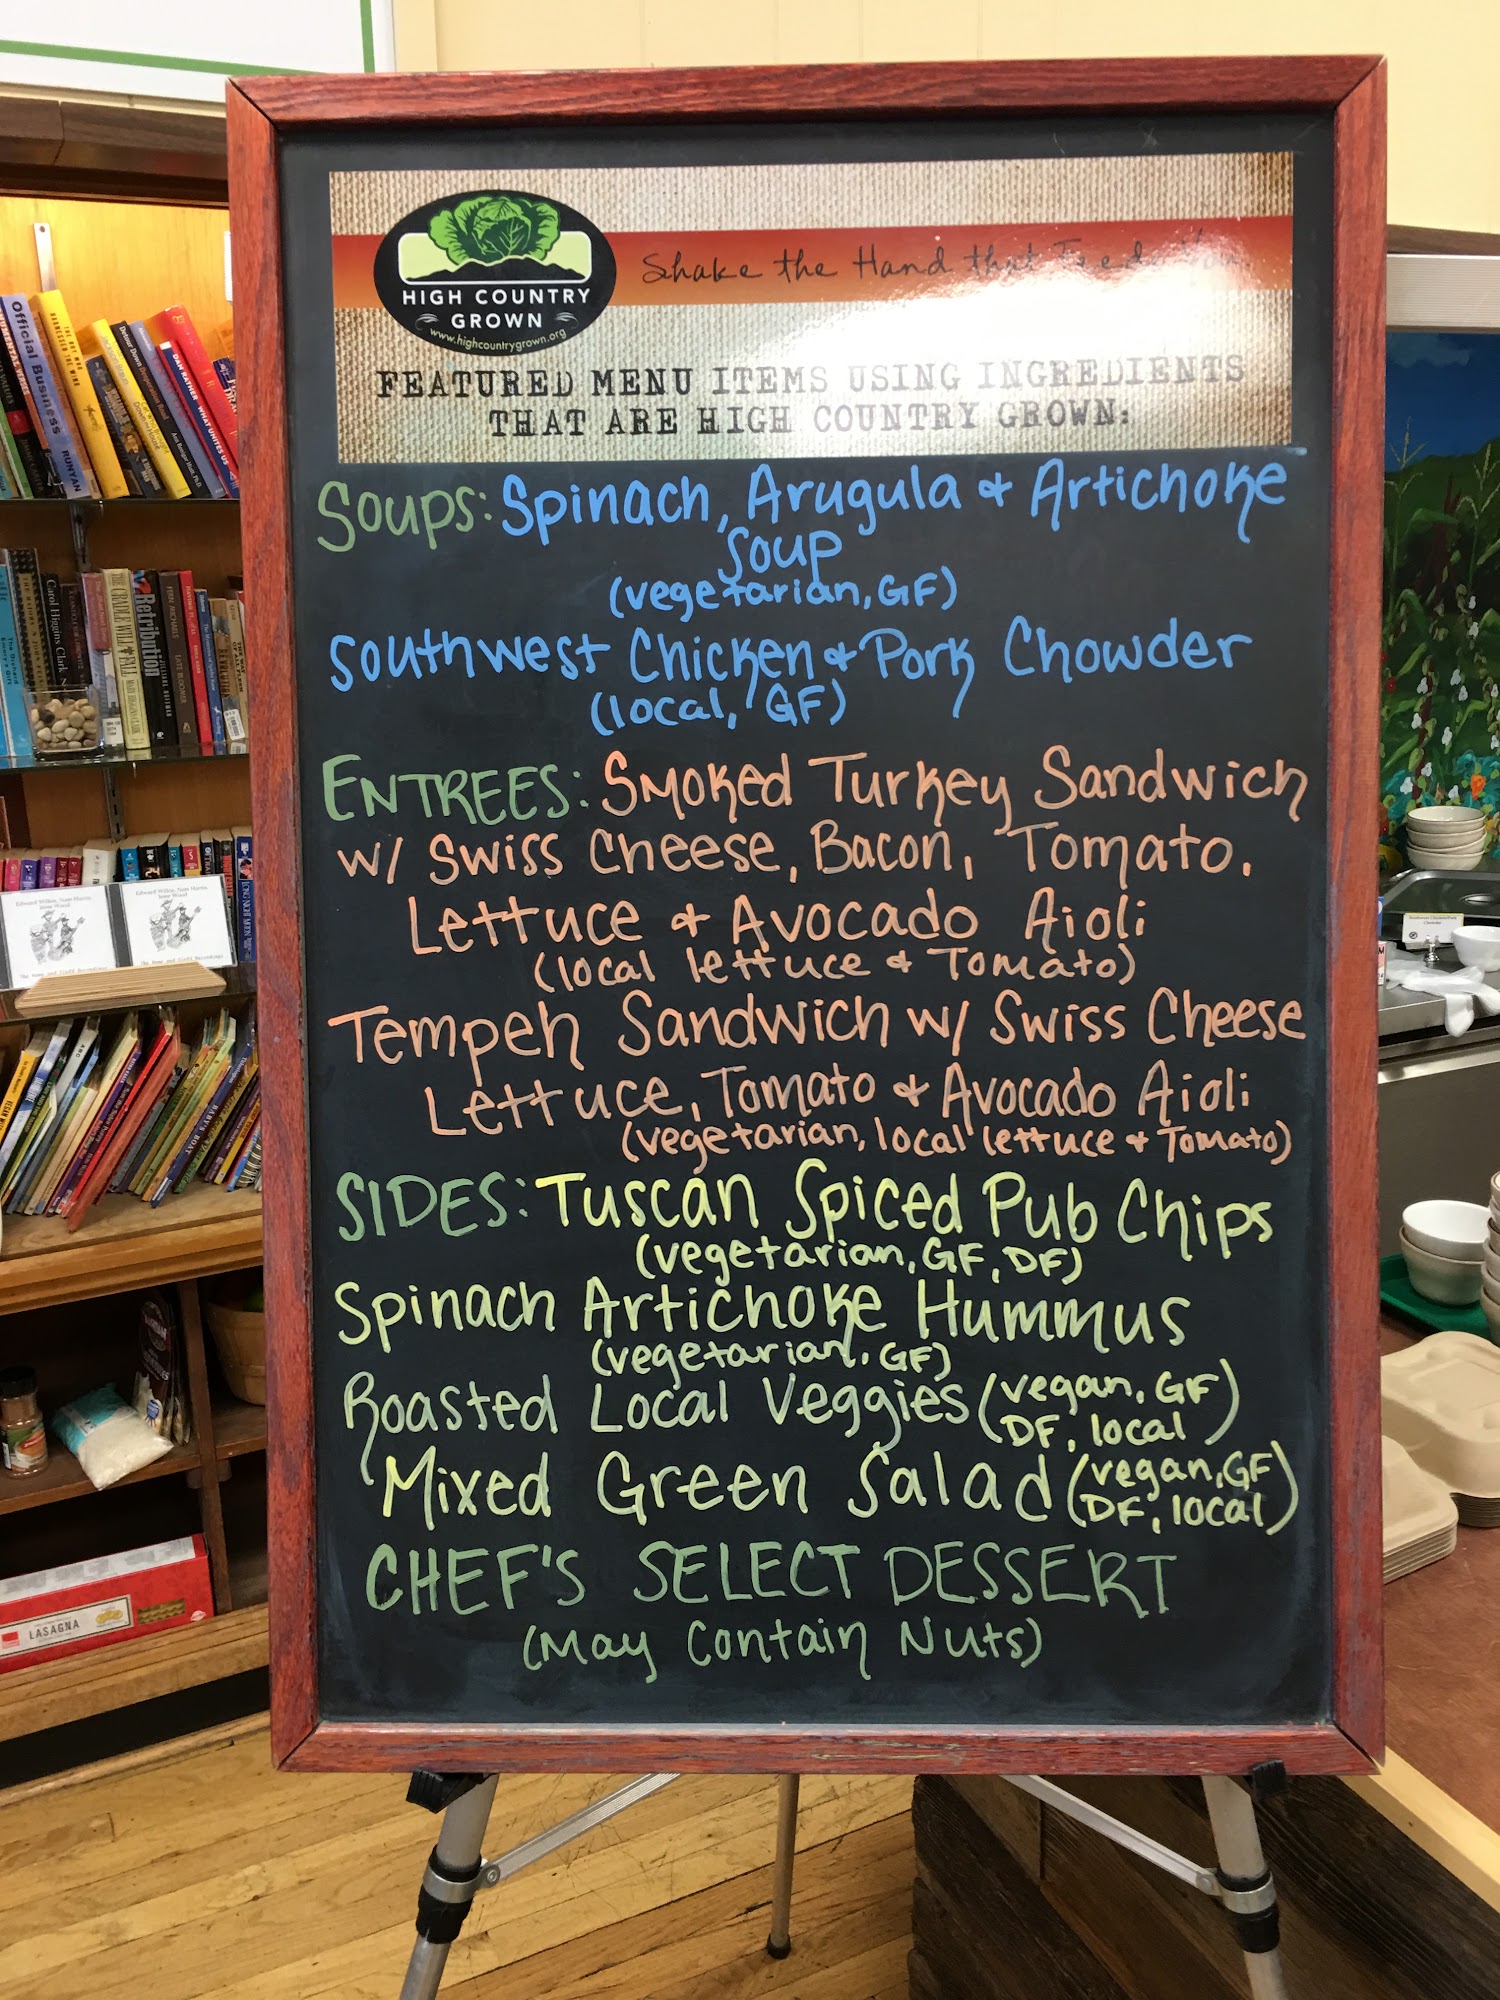 HIGH COUNTRY
GROWN
www.highcountrygrown.org
Shake the Hand that Feeds You
FEATURED MENU ITEMS USING INGREDIENTS
THAT ARE HIGH COUNTRY GROWN:
SOUPS: Spinach, Arugula & Artichoke
Soup
(vegetarian, GF)
Southwest Chicken & Pork Chowder
(local, GF)
ENTREES: Smoked Turkey Sandwich
w/ Swiss Cheese, Bacon, Tomato,
Lettuce & Avocado Aioli
(local lettuce & Tomato)
Tempeh Sandwich w/ Swiss Cheese
Lettuce, Tomato & Avocado Aioli
(vegetarian, local lettuce & Tomato)
SIDES: Tuscan Spiced Pub Chips
(vegetarian, GF, DF)
Spinach Artichoke Hummus
(vegetarian, GF)
Roasted Local Veggies (vegan, GF
DF, local)
Mixed Green Salad (vegan, GF
DF, local)
CHEF'S SELECT DESSERT
(May Contain Nuts)
Official Business
RUNYAN
DAN RATHER WHAT UNITES US
Carol Higgins Clark
THE CRADLE WILL FALL
Retribution
JILLIANE HOFFMAN
LATE BLOOMER
BABY'S BOAT
LASAGNA